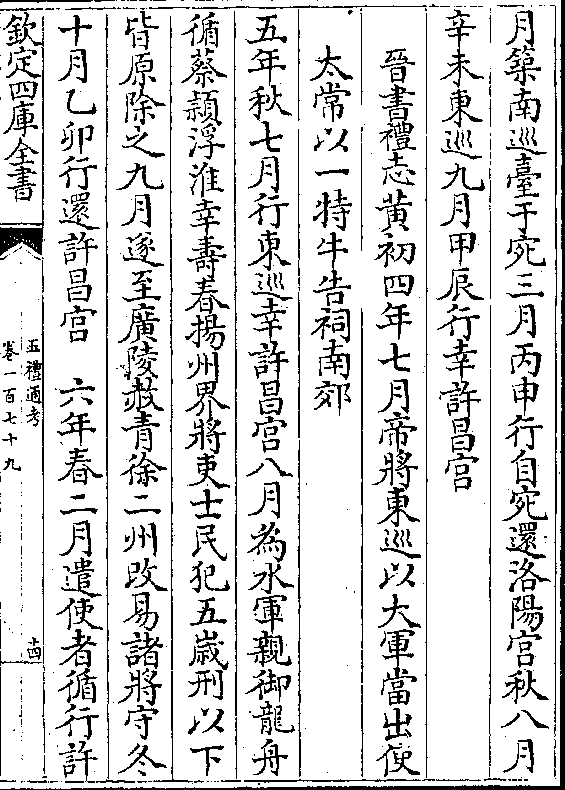 月築南巡臺于宛三月丙申行自宛還洛陽宮秋八月
辛未東巡九月甲辰行幸許昌宮
晉書禮志黃初四年七月帝將東巡以大軍當出使
太常以一特牛告祠南郊
五年秋七月行東巡幸許昌宮八月為水軍親御龍舟
循蔡潁浮淮幸壽春揚州界將吏士民犯五歲刑以下
皆原除之九月遂至廣陵赦青徐二州改易諸將守冬
十月乙卯行還許昌宮　六年春二月遣使者循行許
欽定四庫全書
五禮通考
卷一百七十九
十四